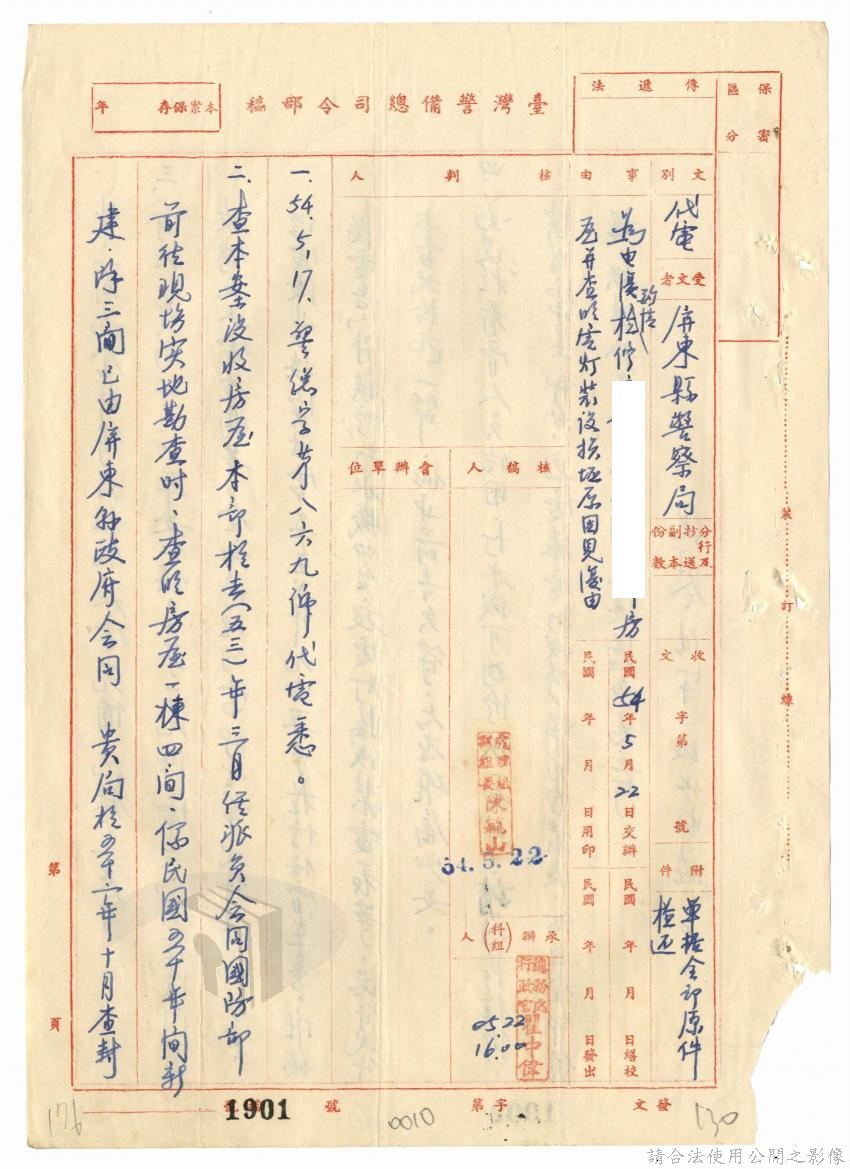 保密
區分
傳遞法
臺灣警備總司令部稿
本案保存　年
文別
代電
受文者
屏東縣警察局
分行及抄送副本份數
收文　字第　號
附件
單據全部原件
檢還
事由
為電復檢修
房
屋并查明電灯裝設損壞原因見復由
民國54年5月22日交辦
民國　年　月　日繕校
民國　年　月　日用印
民國　年　月　日發出
核判人
核稿人
會辦單位
組長陳毓山
54.5.22
承辦(科組)人
行政官瞿中偉
05.22
16.00
一、54.5.17.警總字第八六九號代電悉。
二、查本案沒收房屋本部於去(五三)年三月經派員會同國防部
前往現場实地勘查時、查明房屋一棟四間、係民國五十年間新
建、除三間已由屏東縣政府会同　貴局於五十二年十月查封
裝訂線
第　頁
發文　字第　號
1901
0010
176
130
請合法使用公開之影像